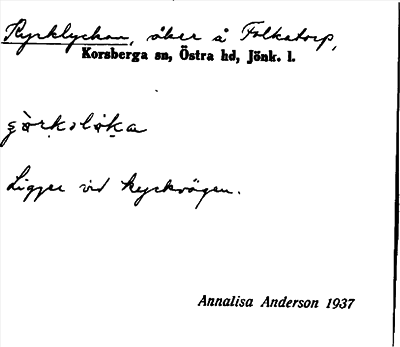 Kyrklyckan, åker å Folkatorp,
Korsberga sn, Östra hd, Jönk. l.
Ligger vid kyrkvägen.
Annalisa Anderson 1937